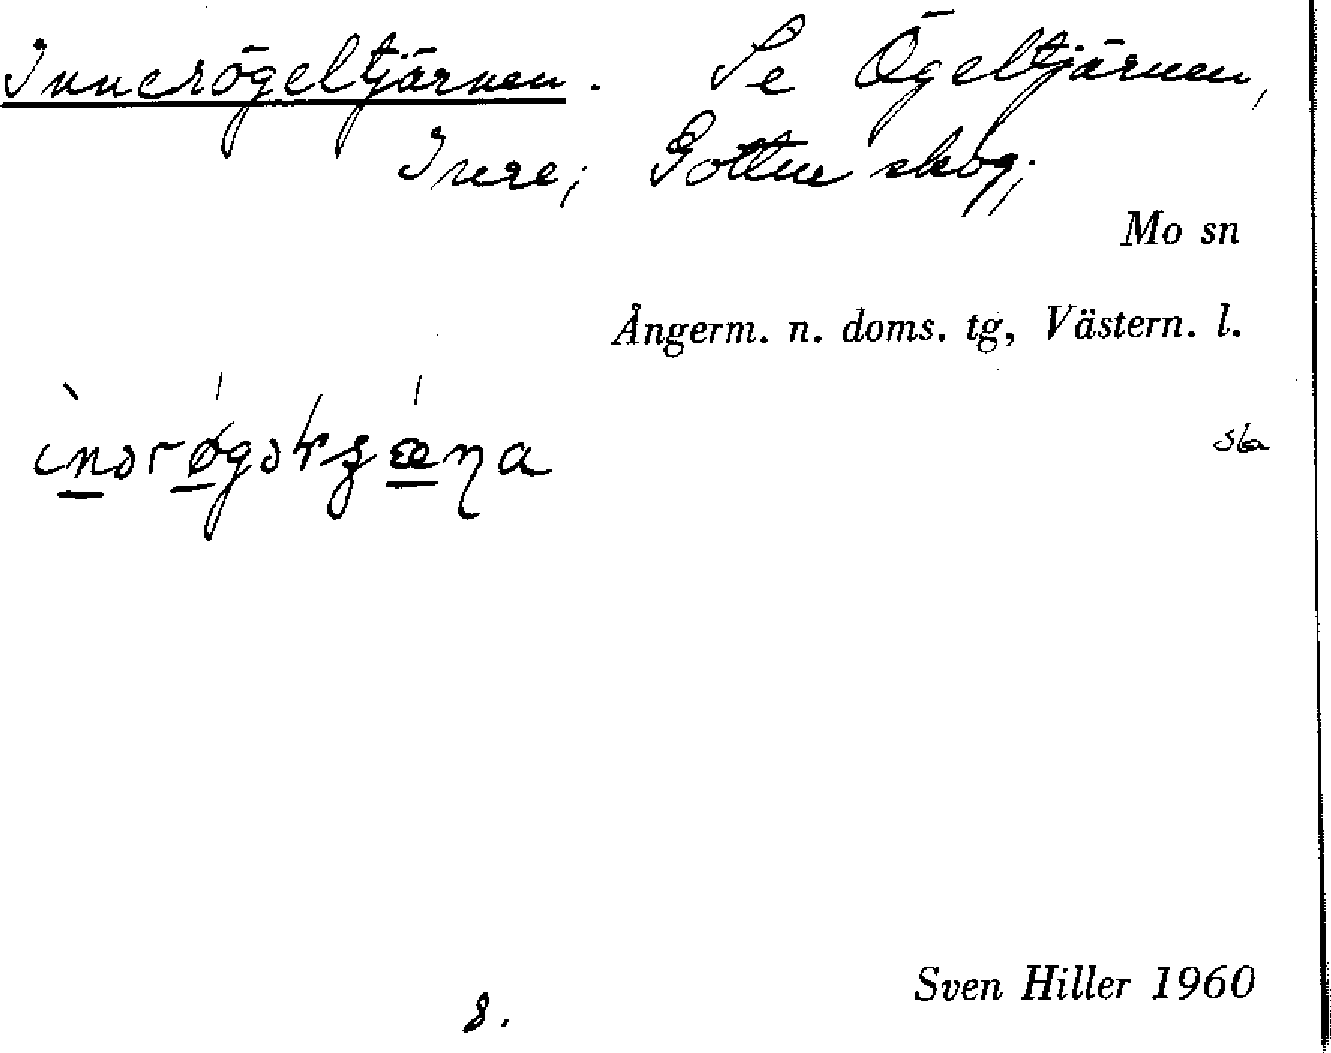 Innerögeltjärnen. Se Ögeltjärnen,
Inre; Gottne skog;
Mo sn
Ångerm. n. doms. tg, Västern. l.
sta
Sven Hiller 1960
8.